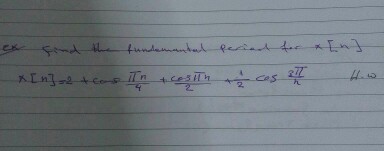 ex Find the fundamental period for x[n]
x[n]=2 + cos πn/4 + cosπn/2 + 1/2 cos 2π/n H.w